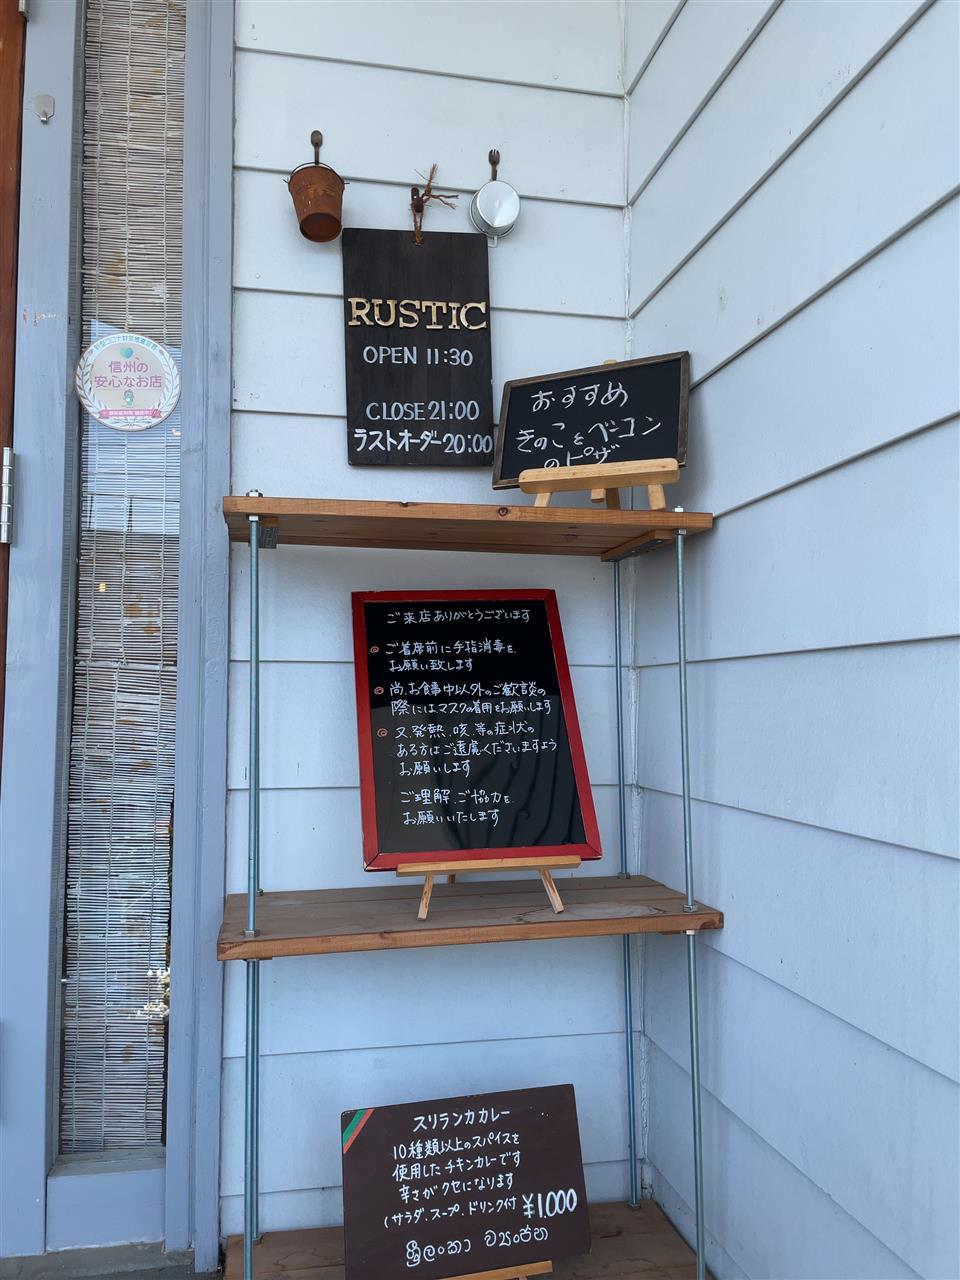 RUSTIC
OPEN 11:30
CLOSE 21:00
ラストオーダー20:00
おすすめ
きのことベーコン
のピザ
新型コロナ対策推進宣言
信州の
安心なお店
ご来店ありがとうございます
◎ご着席前に手指消毒を
お願い致します
◎尚、お食事中以外のご歓談の
際にはマスクの着用をお願いします
◎又発熱、咳、等の症状の
ある方はご遠慮くださいますよう
お願いします
ご理解、ご協力を
お願いいたします
スリランカカレー
10種類以上のスパイスを
使用したチキンカレーです
辛さがクセになります
(サラダ、スープ、ドリンク付 ¥1,000
ශ්‍රී ලංකා